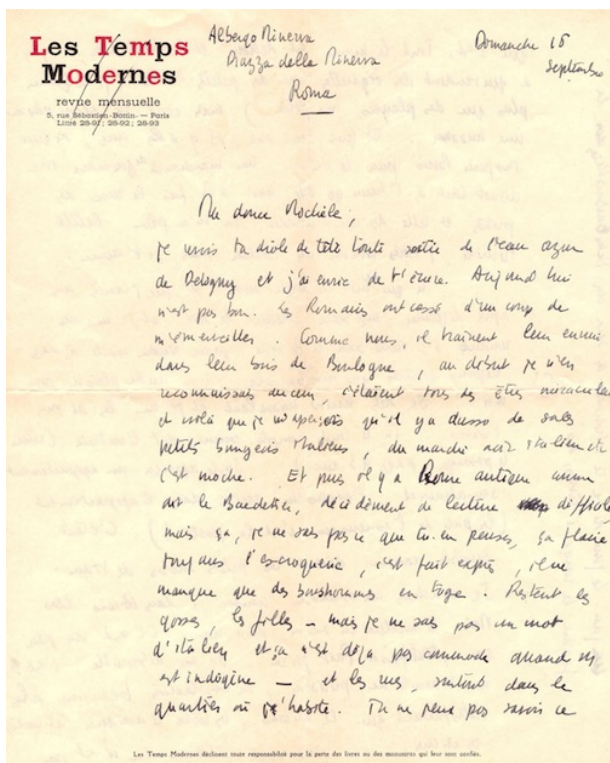 Les Temps
Modernes
revue mensuelle
5, rue Sébastien-Bottin. — Paris
Littré 28-91; 28-92; 28-93
Albergo Minerva
Piazza della Minerva
Roma
Domanche 15
Septembre
Ma douce Michèle,
je vois ta drôle de tête toute sortie de l'eau azur
de Deligny et j'ai envie de t'écrire. Aujourd'hui
n'est pas bon. Les Romains ont cessé d'un coup de
m'émerveiller. Comme nous, ils traînent leur ennui
dans leur bois de Boulogne, au début je n'en
reconnaissais aucun, c'étaient tous des êtres miraculeux
et voilà que je m'aperçois qu'il y a aussi de sales
petits bourgeois italiens, du marché noir italien etc
c'est moche. Et puis il y a Rome antique comme
dit le Baedeker, décidément de lecture difficile
mais ça, je ne sais pas ce que tu en penses, ça flaire
toujours l'escroquerie, c'est fait exprès, il ne
manque que des bonshommes en toge. Restent les
gosses, les filles — mais je ne sais pas un mot
d'italien et ça n'est déjà pas commode quand on
est indigène — et les rues, surtout dans le
quartier où j'habite. Tu ne peux pas savoir ce
Les Temps Modernes déclinent toute responsabilité pour la perte des livres ou des manuscrits qui leur sont confiés.